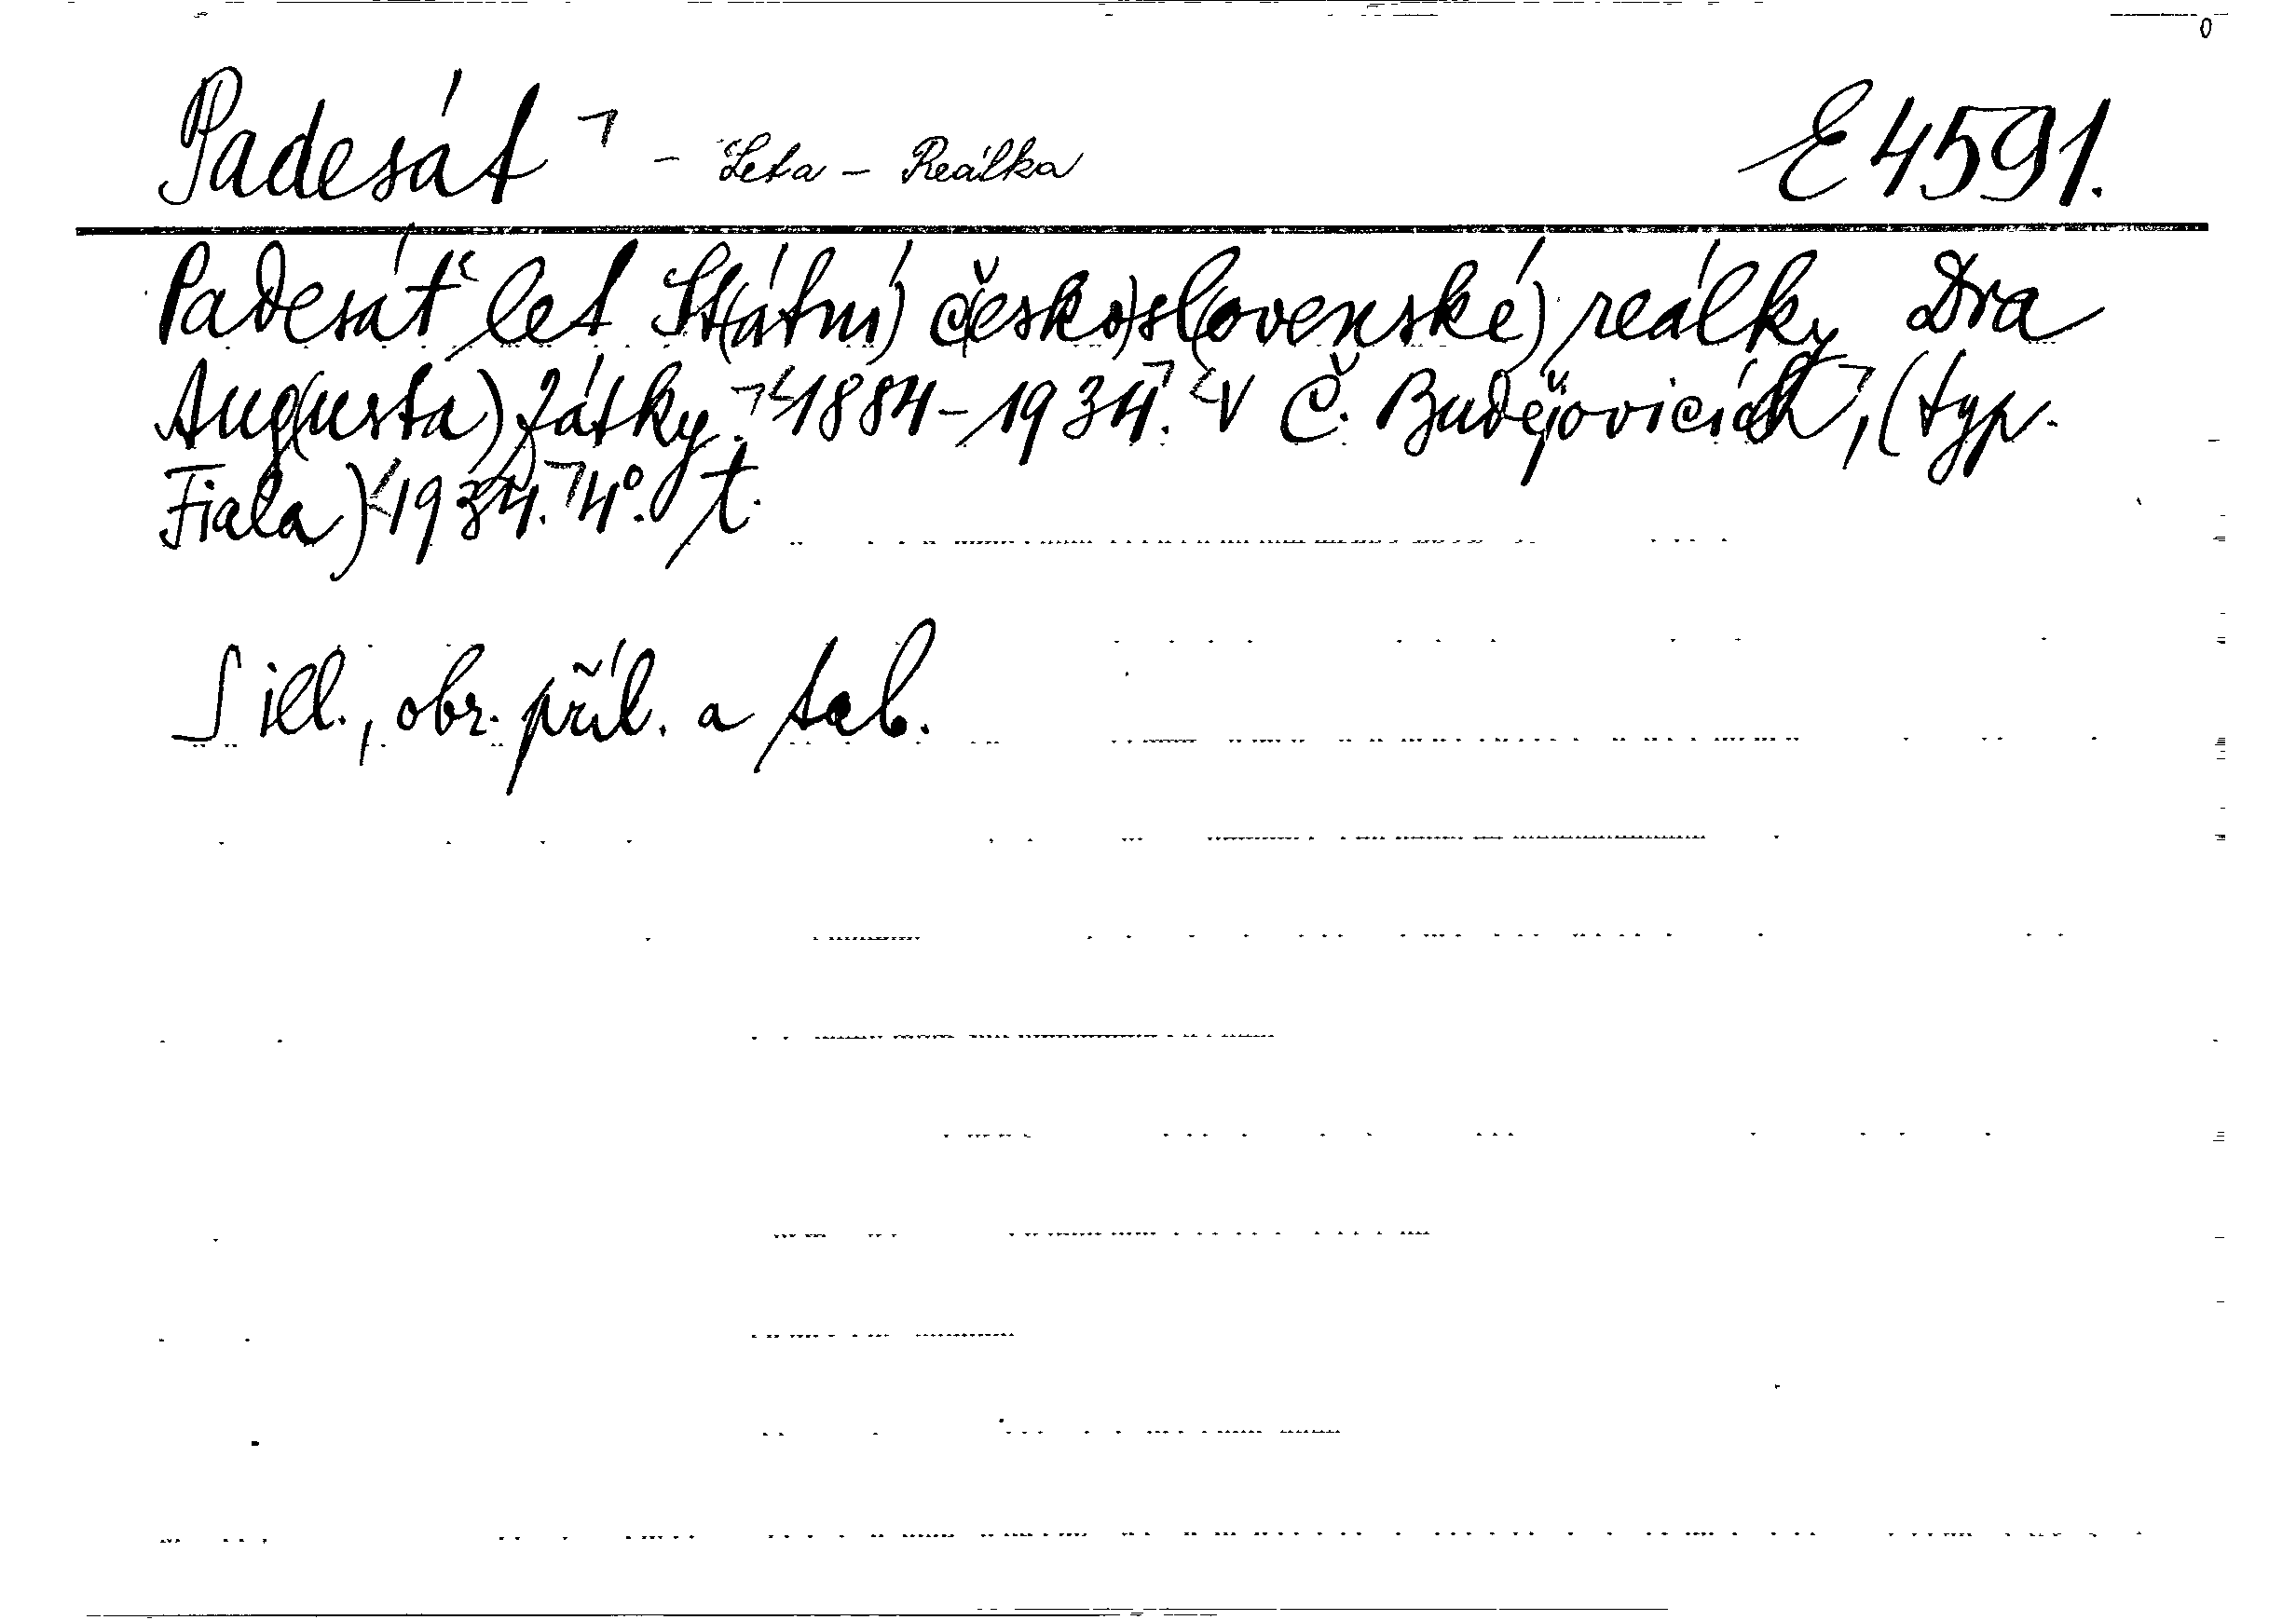 Padesát - Leta - Reálka E 4591.
Padesát let St(átní) č(esko)sl(ovenské) reálky Dra
Aug(usta) Zátky. 1884-1934. V Č. Budějovicích, (typ.
Fiala) 1934. 4°. t.
S ill., obr. příl. a tab.